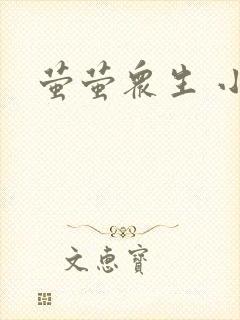 萤萤众生 小
文惠宝